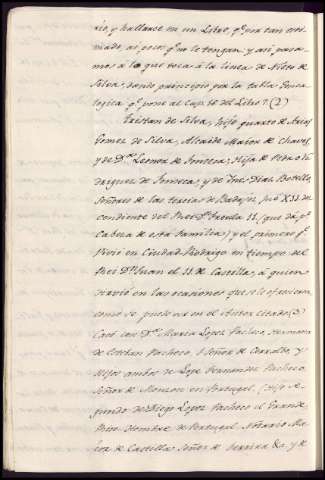 rio, y hallarse en un Libro, q.e por tan esti-
mado, ai pocos q.e no le tengan, y asi pasa-
mos à lo que toca à la linea de Nieto de
Silva; dando principio por la tabla Genea-
logica q.e pone al Cap. 18 del Libro 7. (2)
Tristan de Silva, hijo quarto de Arias
Gomez de Silva, Alcaide Maior de Chaves,
y de D.a Leonor de Fonseca; Hija de Pedro Ro-
driguez de Fonseca, y de Ines Dias Botello,
Señores de las tercias de Badajoz,
cendiente del Rei D.n Fruela II. (que dà p.r
Cabeza de esta familia) y el primero q.e
vivió en Ciudad Rodrigo en tiempo del
Rei D.n Juan el II. de Castilla, à quien
sirvió en las ocasiones que se le ofrecieron,
como se puede ver en el Autor citado (3)
Casó con D.a Maria Lopez Pacheco, Hermana
de Esteban Pacheco, 1 Señor de Cerralbo, y
Hijos ambos de Lope Fernandez Pacheco,
Señor de Monzon en Portugal, (Hijo se-
gundo de Diego Lopez Pacheco el Grande
Rico Hombre de Portugal, Notario Ma-
ior de Castilla Señor de Ferreira &a. y de